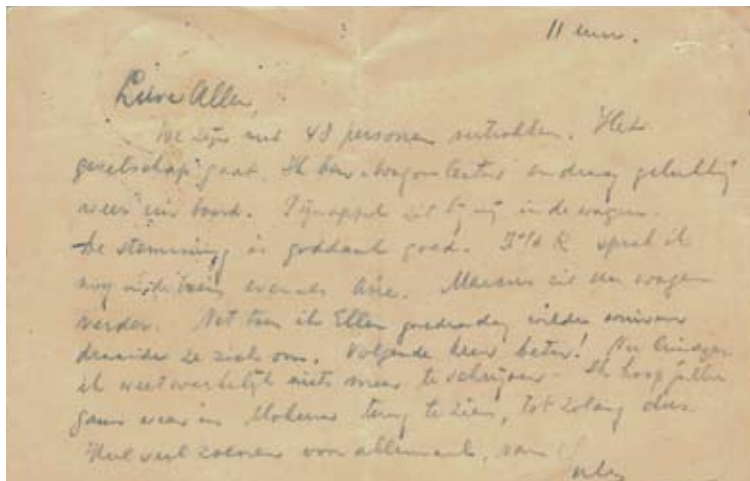 11 uur.
Lieve Allen,
We zijn met 48 personen vertrokken. Het
gezelschap gaat. Ik ben wagonleider en draag gelukkig
weer een band. Pijnappel zit bij mij in de wagon.
De stemming is goddank goed. sprak ik
nog in de trein evenals zit een wagon
verder. Net toen ik Ellen goedendag wilde wuiven
draaide ze zich om. Volgende keer beter! Nu
ik weet werkelijk niets meer te schrijven. Ik hoop jullie
gauw weer in Mokum terug te zien, tot zolang dus
Heel veel zoenen voor allemaal, van